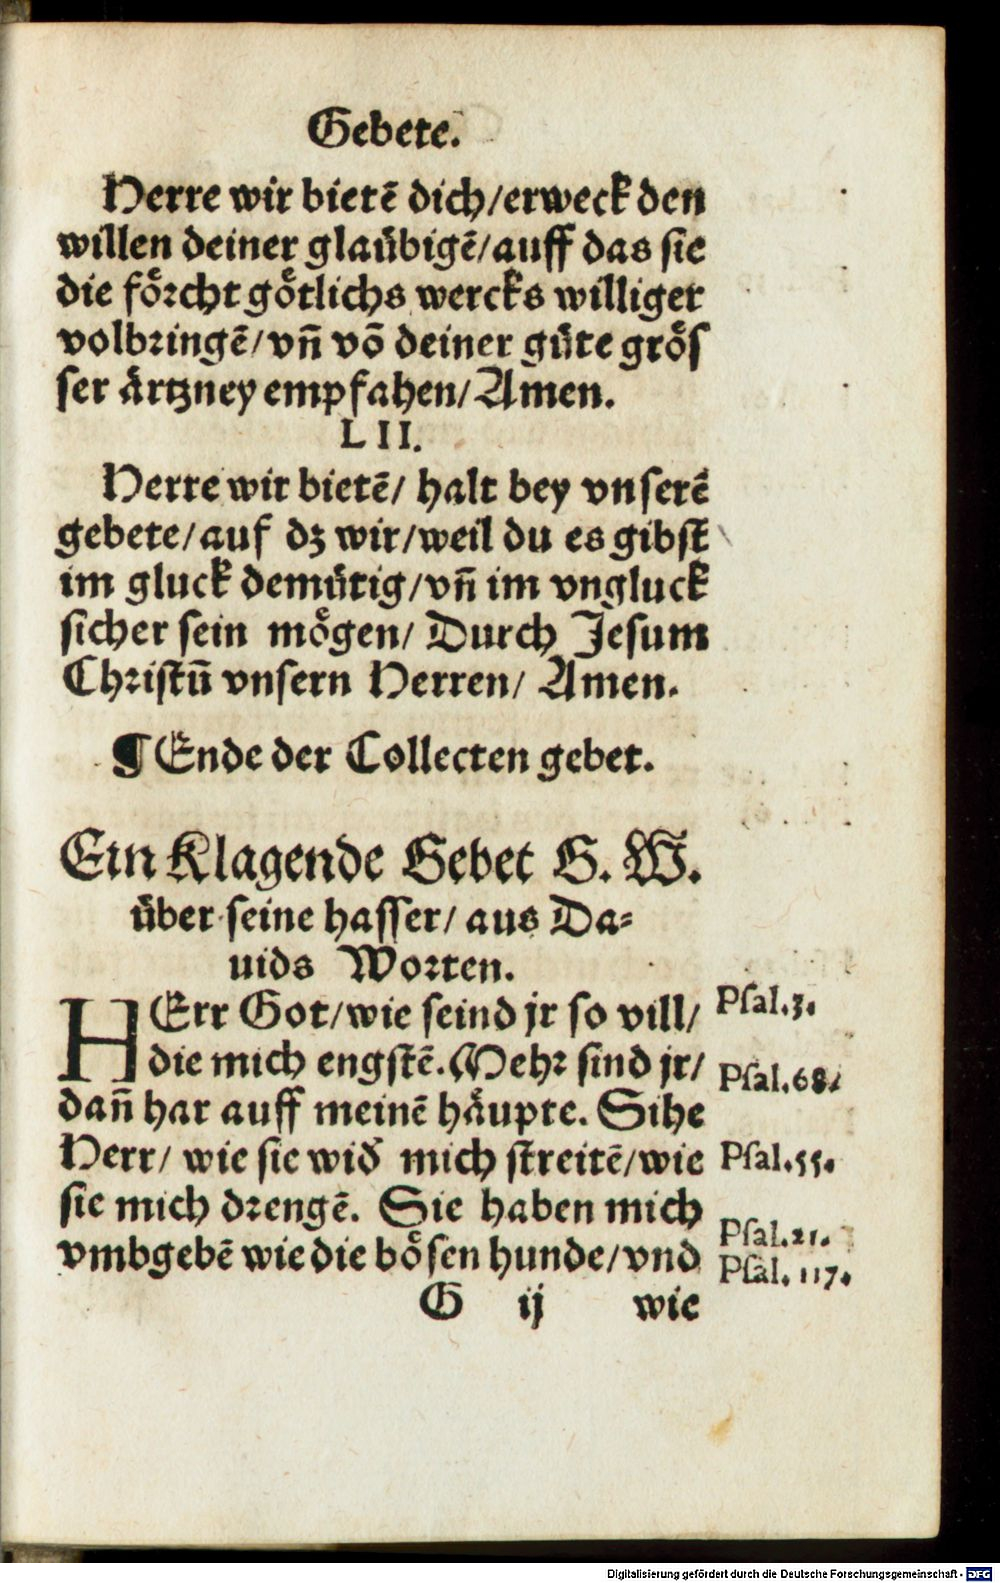 Gebete.
Herre wir bietē dich/erweck den
willen deiner glaübigē/auff das sie
die foͤrcht goͤtlichs wercks williger
volbringē/vn̄ vō deiner güte groͤs
ser ärtzney empfahen/Amen.
LII.
Herre wir bietē/ halt bey vnserē
gebete/auf dz wir/weil du es gibst
im gluck demütig/vn̄ im vngluck
sicher sein moͤgen/ Durch Jesum
Christū vnsern Herren/ Amen.
¶ Ende der Collecten gebet.
Ein Klagende Gebet G. W.
über seine hasser/ aus Da⸗
uids Worten.
HErr Got/wie seind jr so vill/
Psal.3.
die mich engstē. Mehr sind jr/
Psal.68.
dan̄ har auff meinē haͤupte. Sihe
Herr/ wie sie wid᷒ mich streitē/wie
Psal.55.
sie mich drengē. Sie haben mich
Psal.21.
vmbgebē wie die boͤsen hunde/vnd
Psal.117.
G ij wie
Digitalisierung gefördert durch die Deutsche Forschungsgemeinschaft - DFG